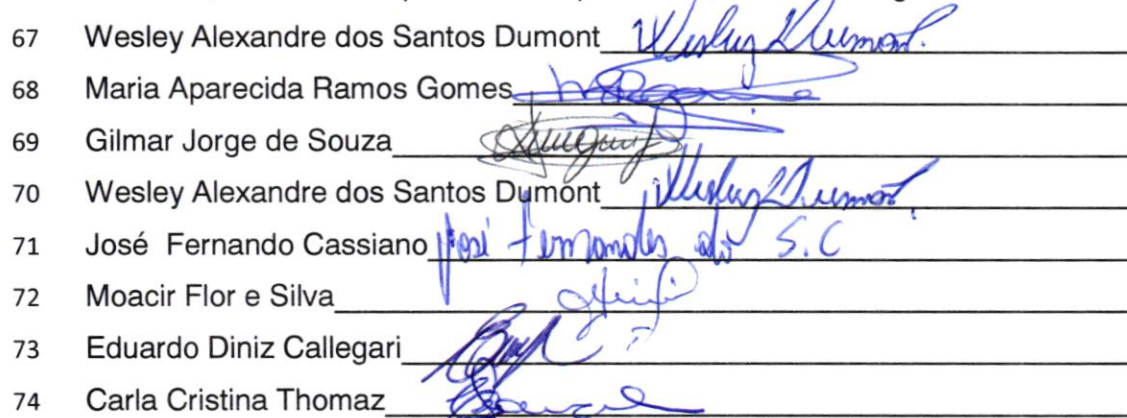 67 Wesley Alexandre dos Santos Dumont Wesley Dumont.
68 Maria Aparecida Ramos Gomes
69 Gilmar Jorge de Souza
70 Wesley Alexandre dos Santos Dumont Wesley Dumont.
71 José Fernando Cassiano José Fernandes do S.C
72 Moacir Flor e Silva
73 Eduardo Diniz Callegari
74 Carla Cristina Thomaz